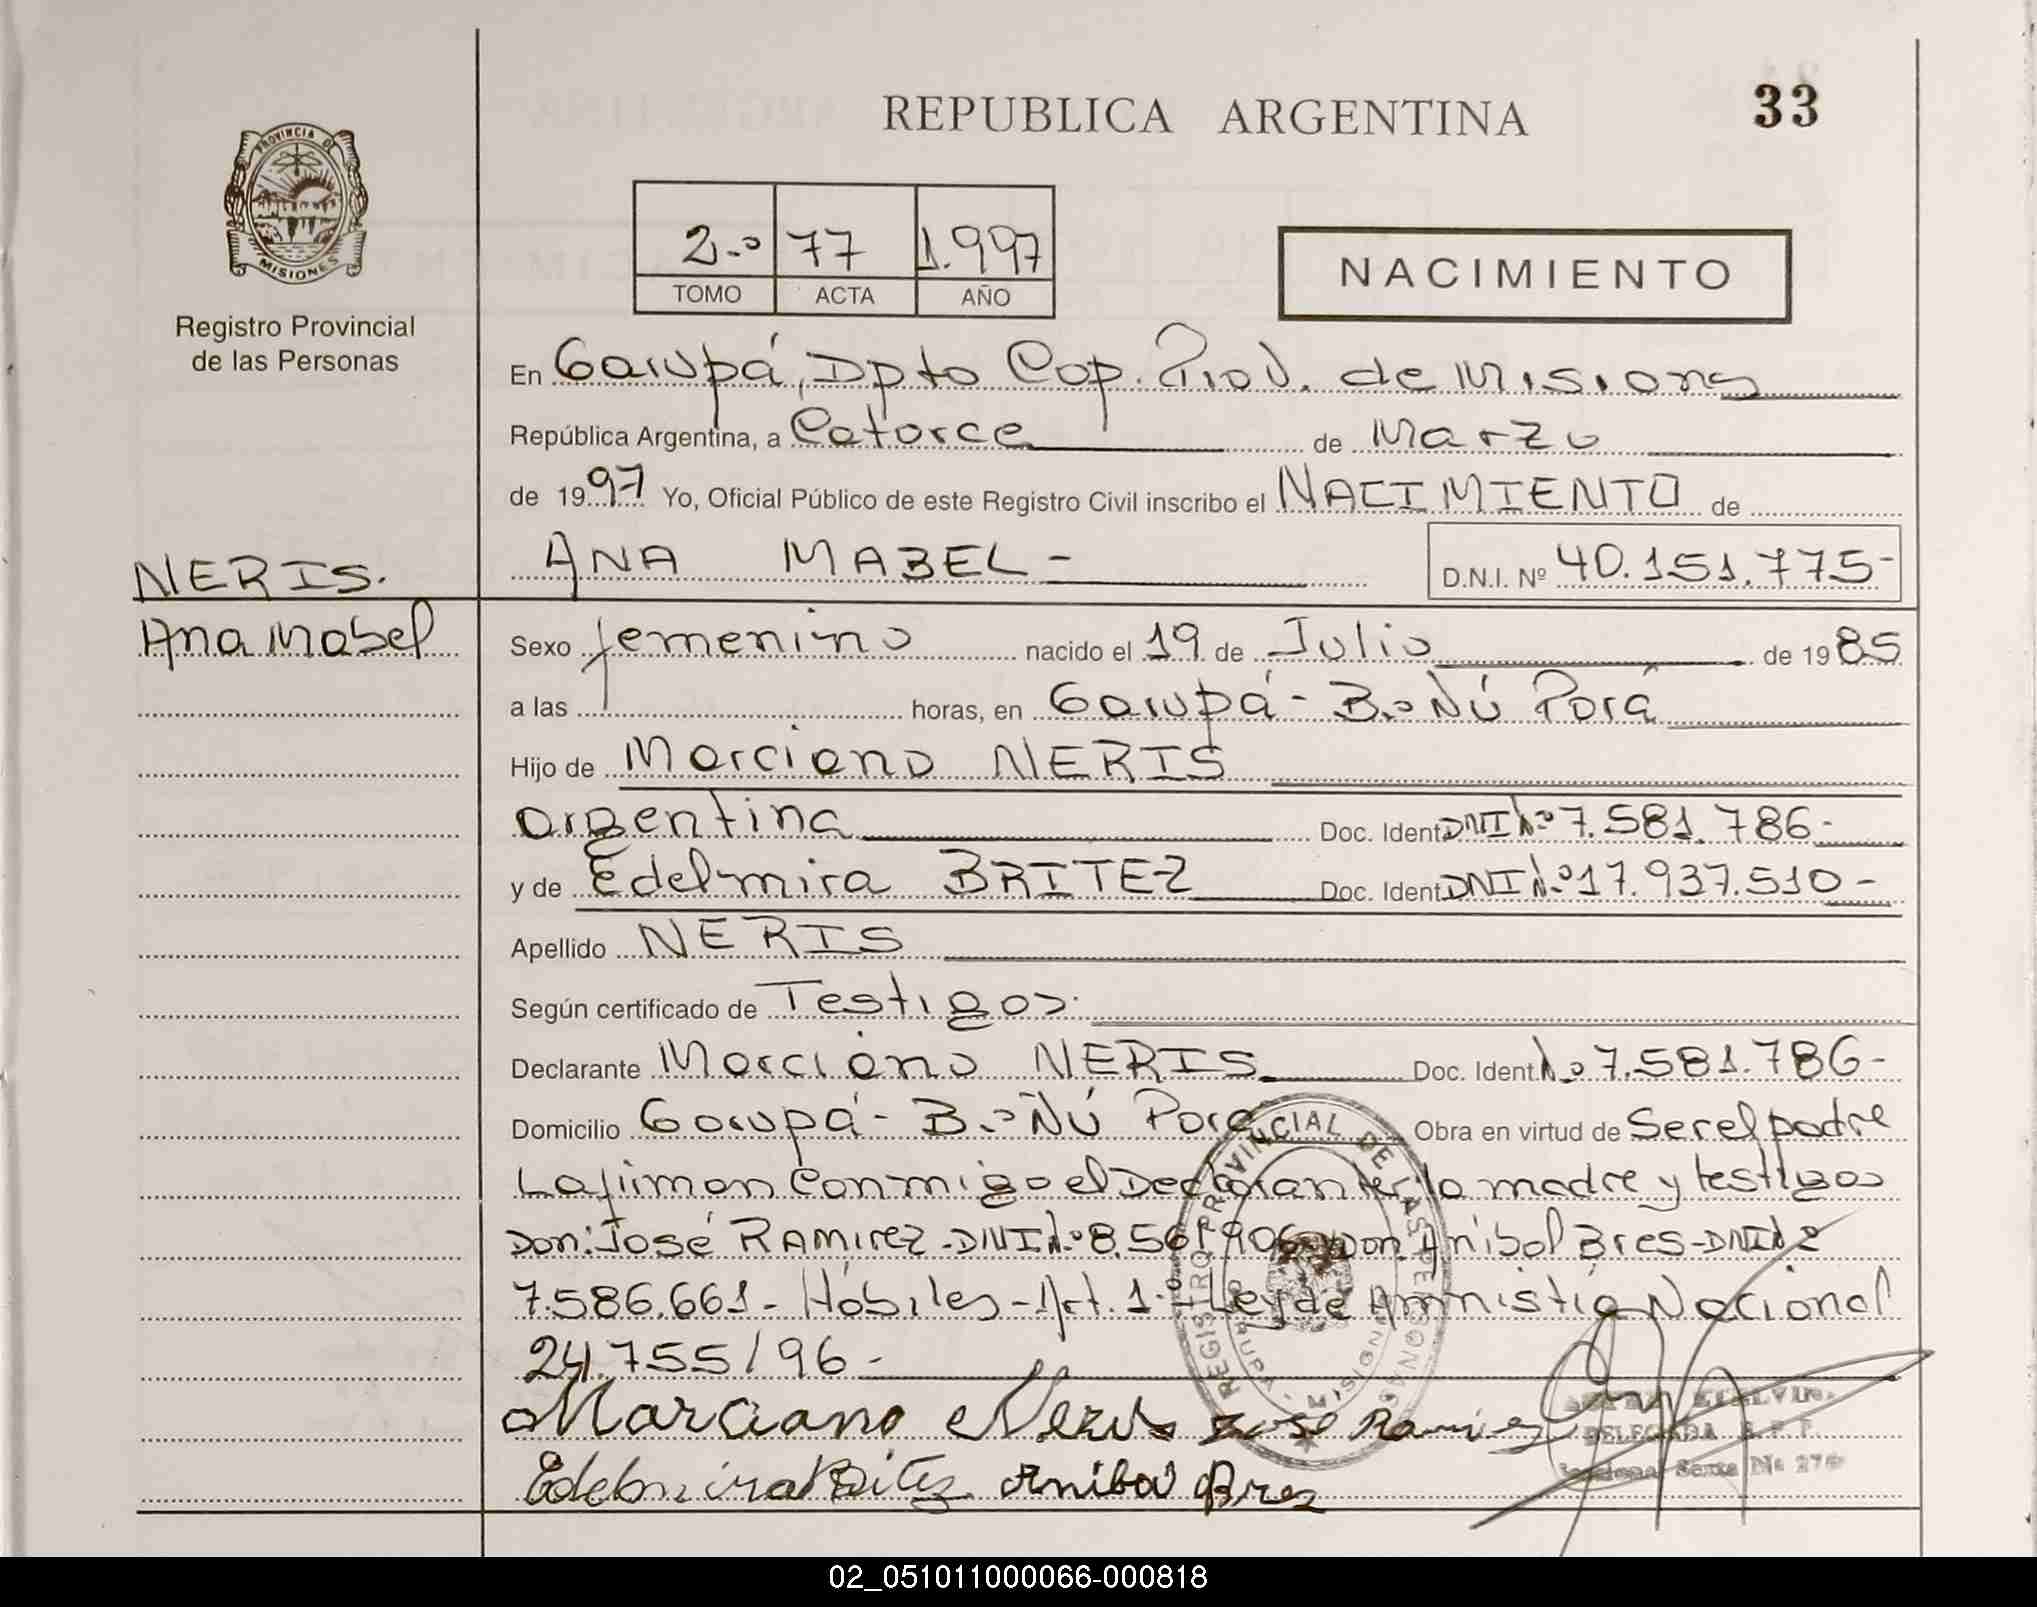 REPUBLICA ARGENTINA
33
PROVINCIA DE MISIONES
Registro Provincial
de las Personas
2.º 77 1.997
TOMO ACTA AÑO
NACIMIENTO
En Garupá, Dpto Cap. Prov. de Misiones
República Argentina, a Catorce de Marzo
de 1997 Yo, Oficial Público de este Registro Civil inscribo el NACIMIENTO de
NERIS.
Ana Mabel
ANA MABEL -
D.N.I. Nº 40.151.775-
Sexo femenino nacido el 19 de Julio de 1985
a las horas, en Garupá - B.º Ñú Porá
Hijo de Marciano NERIS
Argentina Doc. Ident. DNI Nº 7.581.786-
y de Edelmira BRITEZ Doc. Ident. DNI Nº 17.937.510-
Apellido NERIS
Según certificado de Testigos.
Declarante Marciano NERIS Doc. Ident. Nº 7.581.786-
Domicilio Garupá - B.º Ñú Porá Obra en virtud de Ser el padre
La firman Conmigo el Declarante, la madre y testigos
Don: José RAMIREZ - DNI Nº 8.561.906 y Don Anibal Bres - DNI Nº
7.586.661 - Hábiles - Art. 1.º Ley de Amnistía Nacional
24.755/96 -
Marciano Neris José Ramirez
Edelmira Britez Anibal Bres
REGISTRO PROVINCIAL DE LAS PERSONAS
GARUPA - MISIONES
DELEGADA R. P. P.
02_051011000066-000818